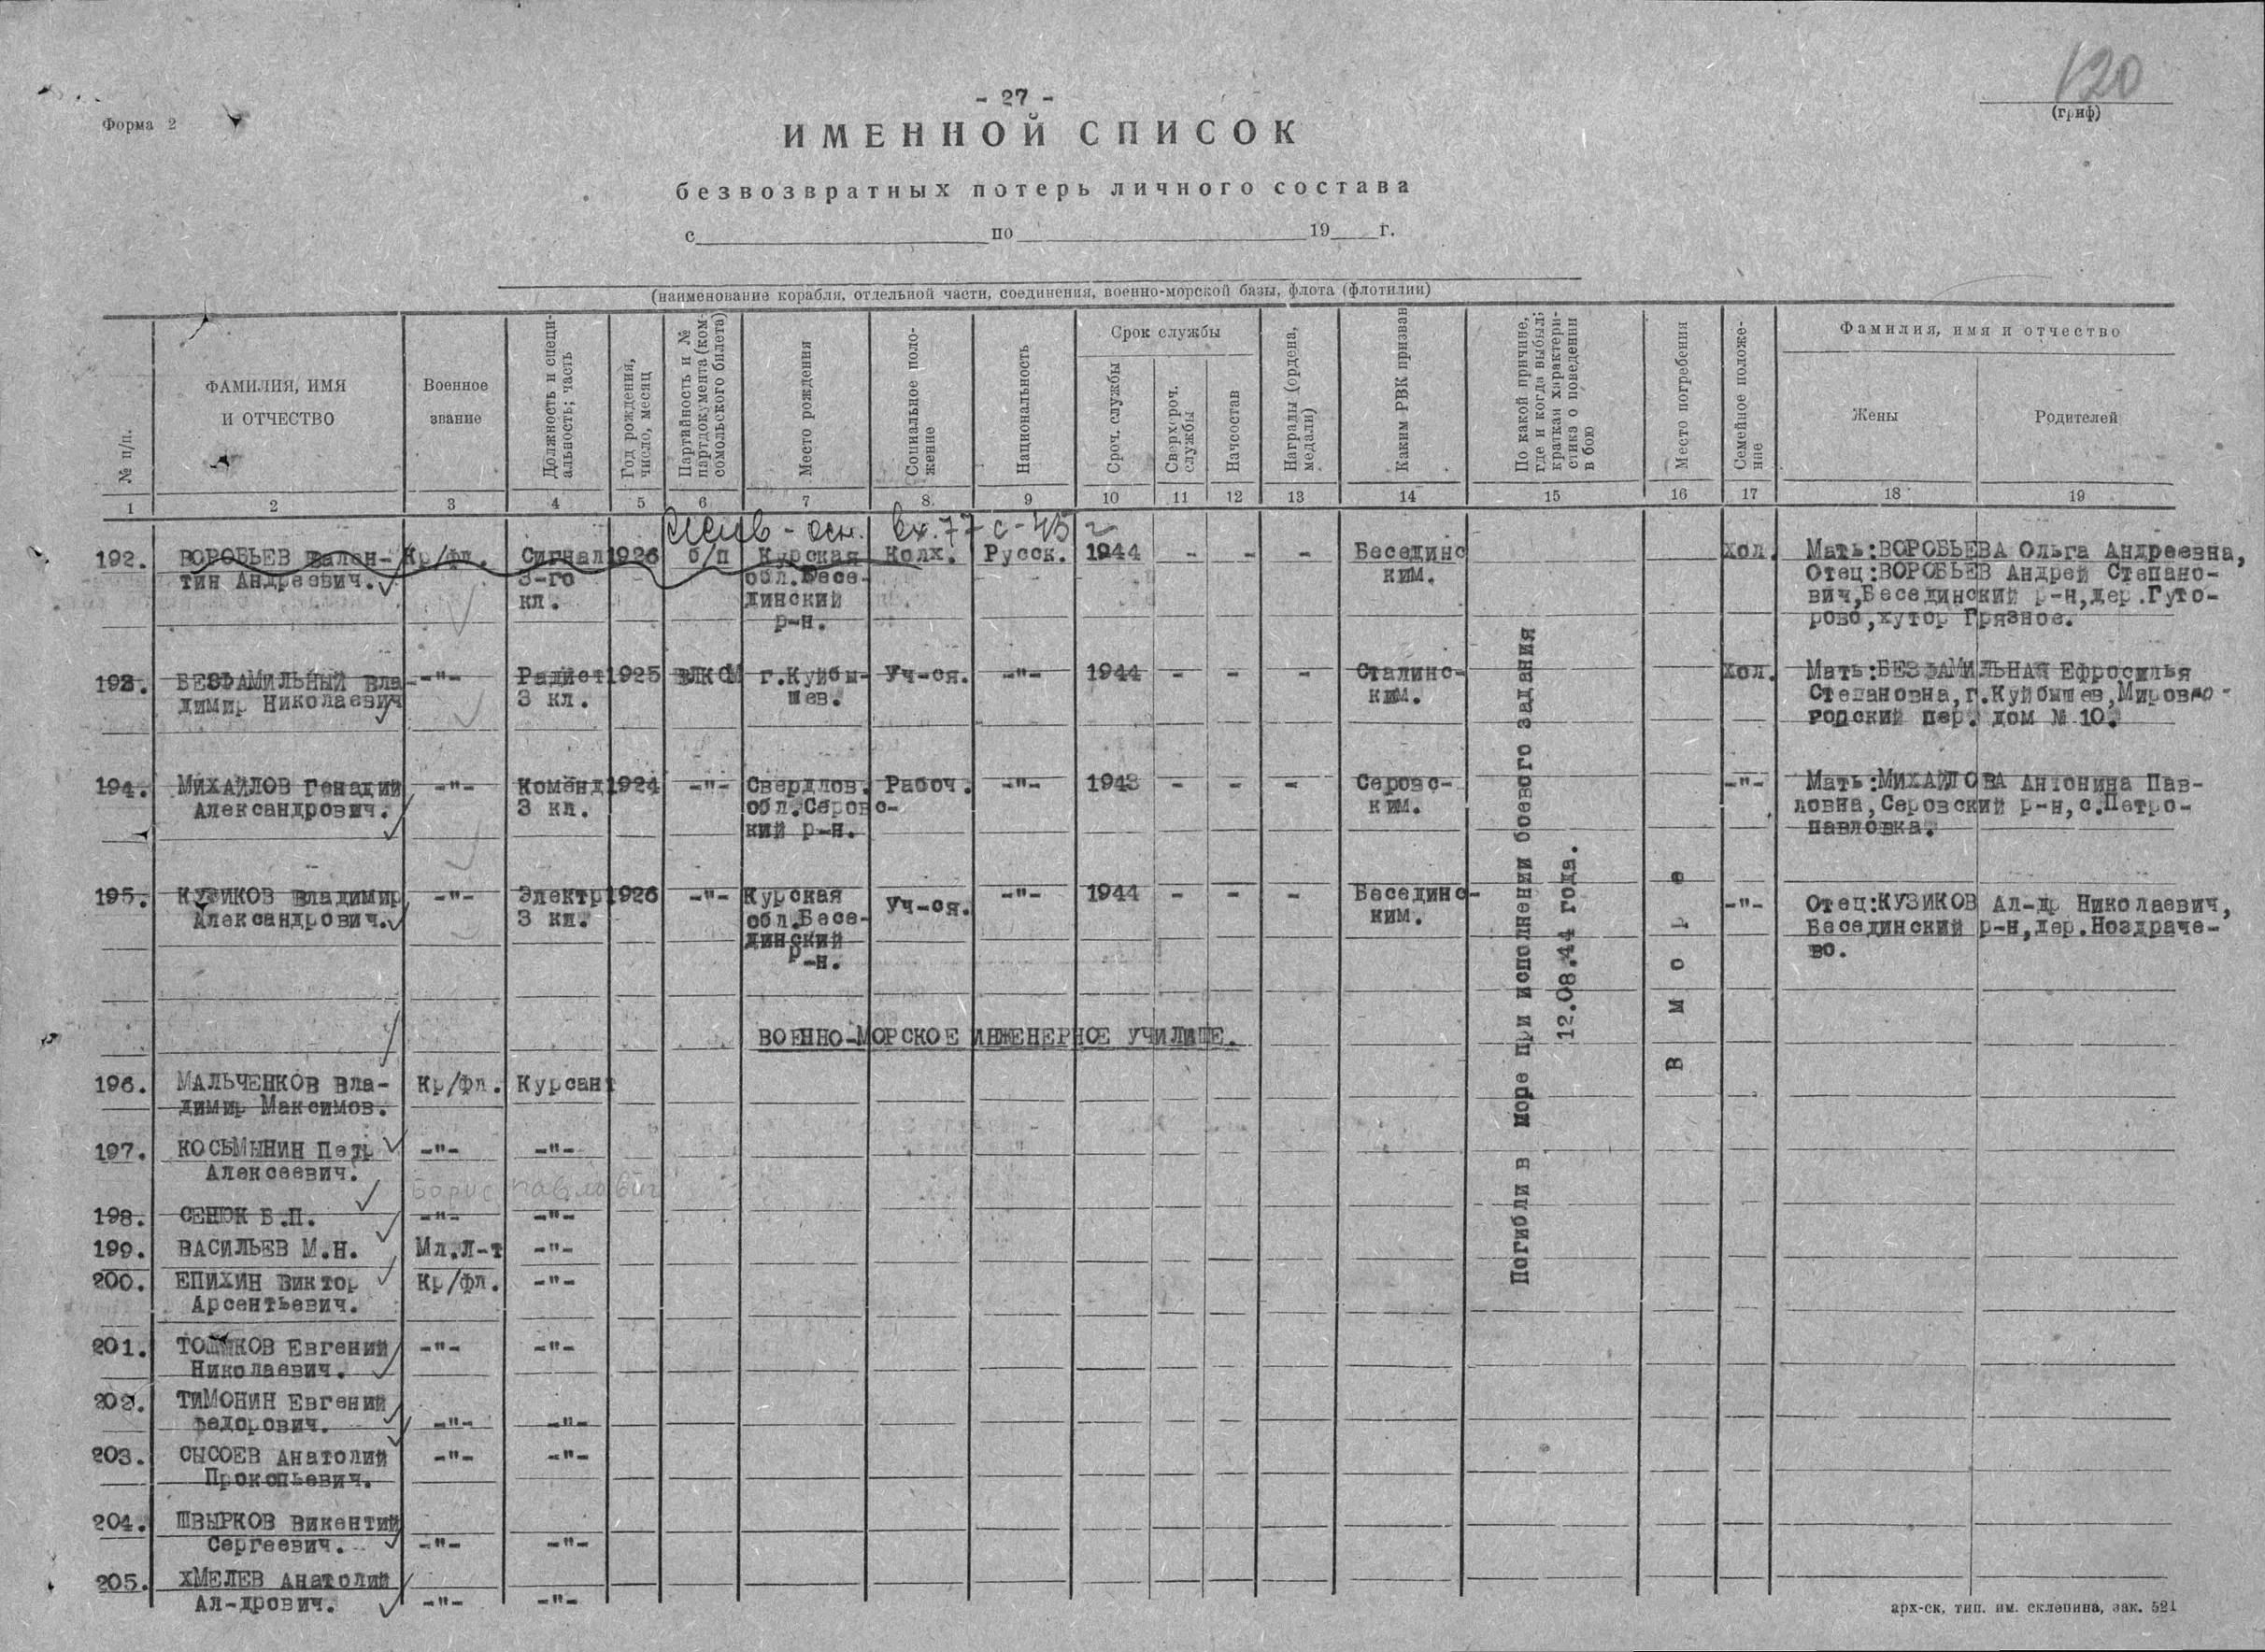 120
- 27 -
Форма 2
(гриф)
ИМЕННОЙ СПИСОК
безвозвратных потерь личного состава
с по 19 г.
(наименование корабля, отдельной части, соединения, военно-морской базы, флота (флотилии)
№ п/п.
ФАМИЛИЯ, ИМЯ
И ОТЧЕСТВО
Военное
звание
Должность и специ-
альность; часть
Год рождения,
число, месяц
Партийность и №
партдокумента (ком-
сомольского билета)
Место рождения
Социальное поло-
жение
Национальность
Срок службы
Сроч. службы
Сверхсроч.
службы
Начсостав
Награды (ордена,
медали)
Каким РВК призван
По какой причине,
где и когда выбыл;
краткая характери-
стика о поведении
в бою
Место погребения
Семейное положе-
ние
Фамилия, имя и отчество
Жены
Родителей
1 2 3 4 5 6 7 8 9 10 11 12 13 14 15 16 17 18 19
вх. 77 с-45 г
192. ВОРОБЬЕВ Вален- Кр/фл. Сигнал 1926 б/п Курская Колх. Русск. 1944 - - - Бесединс хол. Мать:ВОРОБЬЕВА Ольга Андреевна,
тин Андреевич. 3-го обл.Бесе- ким. Отец:ВОРОБЬЕВ Андрей Степано-
кл. динский вич,Бесединский р-н,дер.Гуто-
р-н. рово,хутор Грязное.
193. БЕЗФАМИЛЬНЫЙ Вла- -"- Радист 1925 ВЛКСМ г.Куйбы- Уч-ся. -"- 1944 - - - Сталинс- Хол. Мать:БЕЗФАМИЛЬНАЯ Ефросилья
димир Николаевич 3 кл. шев. ким. Степановна,г.Куйбышев,Мировло-
родский пер. дом № 10.
194. МИХАЙЛОВ Генадий -"- Коменд 1924 -"- Свердлов. Рабоч. -"- 1943 - - - Серовс- -"- Мать:МИХАЙЛОВА Антонина Пав-
Александрович. 3 кл. обл.Серовс- ким. ловна,Серовский р-н,с.Петро-
кий р-н. павловка.
195. КУЗИКОВ Владимир -"- Электр 1926 -"- Курская Уч-ся. -"- 1944 - - - Бесединс- -"- Отец:КУЗИКОВ Ал-др Николаевич,
Александрович. 3 кл. обл.Бесе- ким. Бесединский р-н,дер.Ноздраче-
динский во.
р-н.
Погибли в море при исполнении боевого задания
12.08.44 года.
В море
ВОЕННО-МОРСКОЕ ИНЖЕНЕРНОЕ УЧИЛИЩЕ.
196. МАЛЬЧЕНКОВ Вла- Кр/фл. Курсант
димир Максимов.
197. КОСЬМЫНИН Петр -"- -"-
Алексеевич.
Борис Павлович
198. СЕНЮК Б.П. -"- -"-
199. ВАСИЛЬЕВ М.Н. Мл.Л-т -"-
200. ЕПИХИН Виктор Кр/фл. -"-
Арсентьевич.
201. Евгений -"- -"-
Николаевич.
202. ТИМОНИН Евгений
Федорович. -"- -"-
203. СЫСОЕВ Анатолий -"- -"-
Прокопьевич.
204. ШВЫРКОВ Викентий
Сергеевич. -"- -"-
205. ХМЕЛЕВ Анатолий
Ал-дрович. -"- -"-
арх-ск, тип. им. склепина, зак. 521